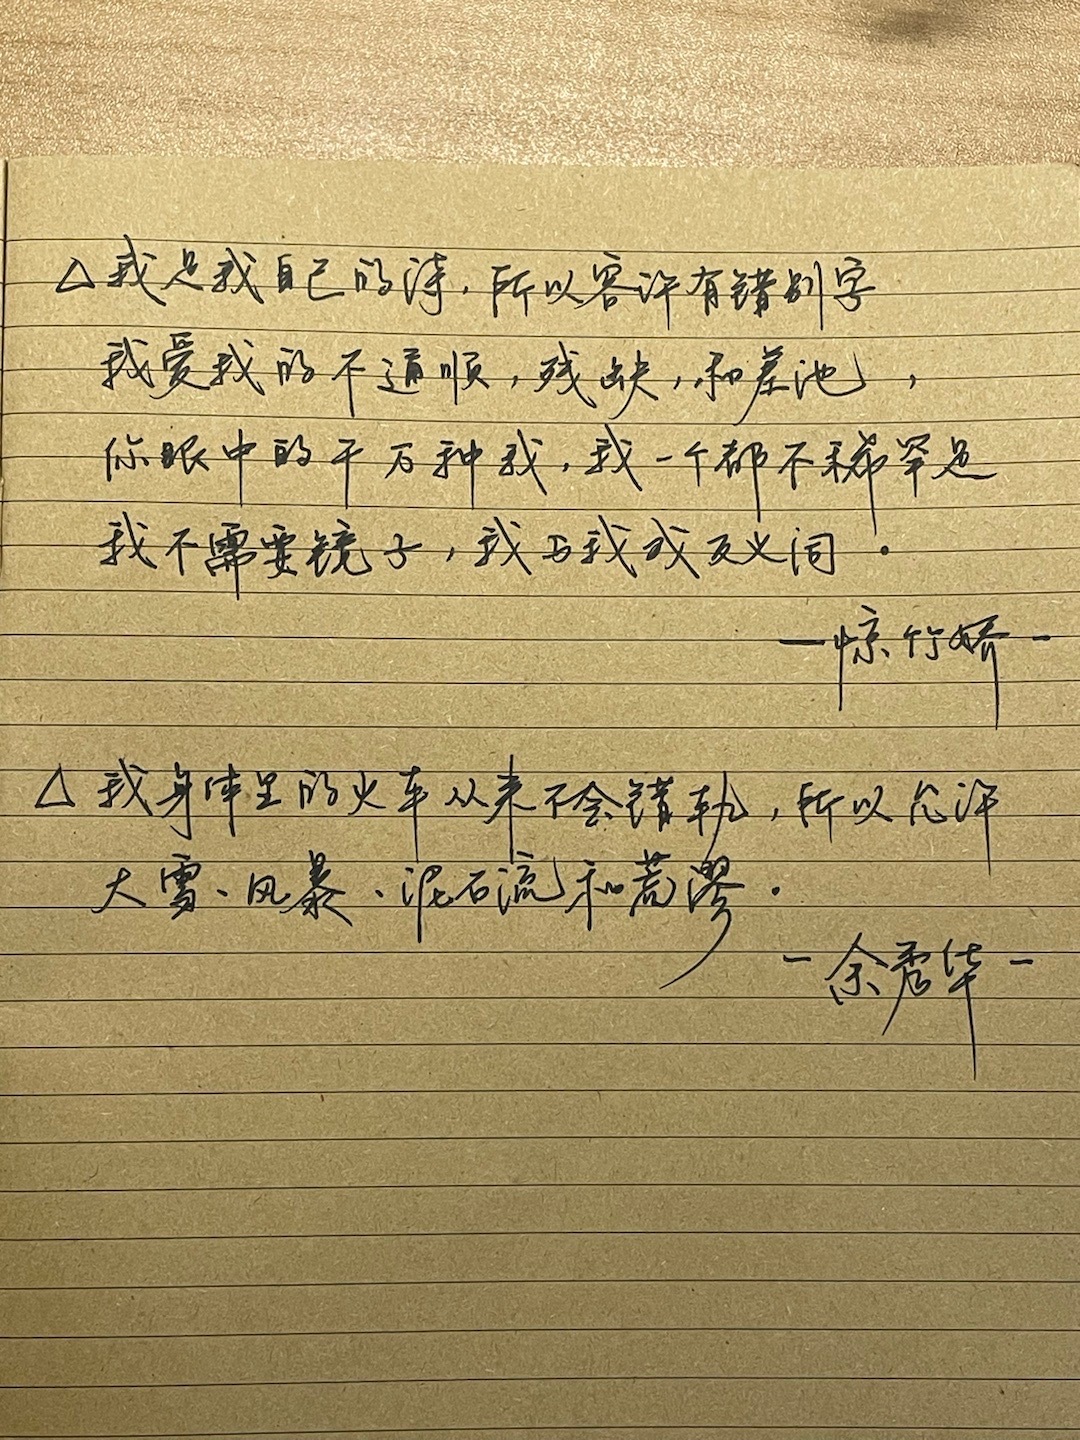 △我是我自己的诗，所以容许有错别字
我爱我的不通顺，残缺，和差池，
你眼中的千万种我，我一个都不稀罕是
我不需要镜子，我与我成反义词．
一惊竹娇一
△我身体里的火车从来不会错轨，所以允许
大雪、风暴、泥石流和荒谬．
一余秀华一